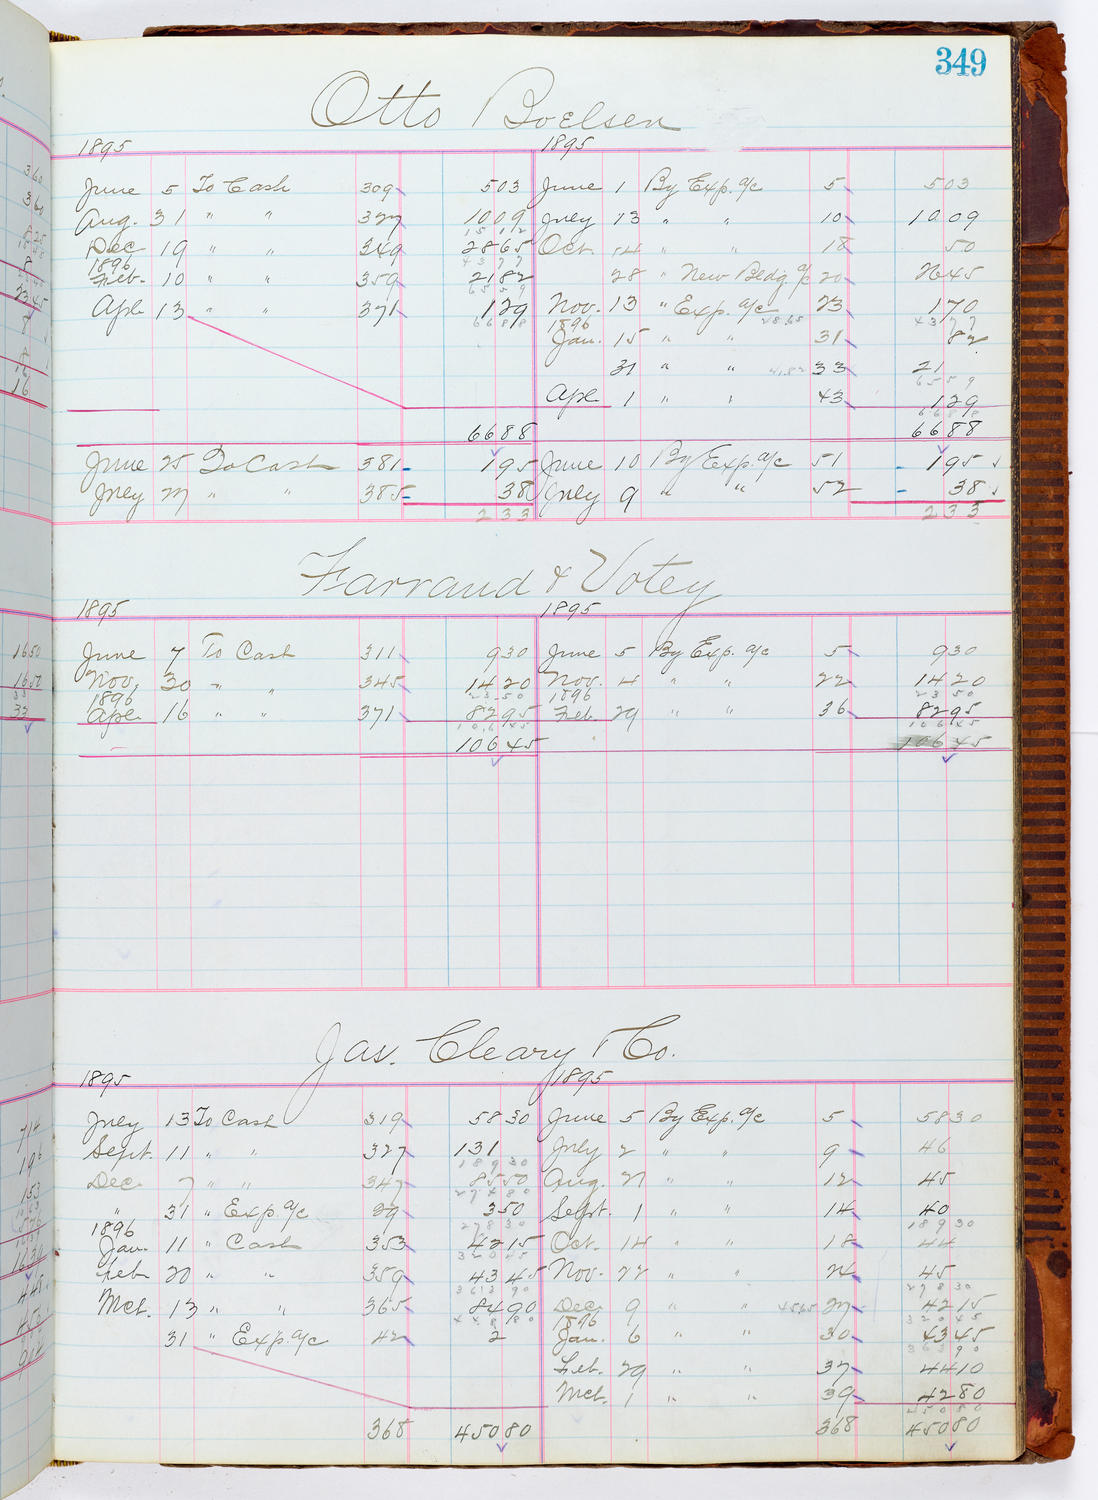 349
Otto Boelsen
1895 1895
June 5 To Cash 309 503 June 1 By Exp. a/c 5 503
Aug. 31 " " 327 1009 July 13 " " 10 1009
15 12
Dec 19 " " 349 2865 Oct. 14 " " 18 50
1896 43 77
Feb. 10 " " 359 2182 28 " New Bldg a/c 20 2645
65 59
Apl. 13 " " 371 129 Nov. 13 " Exp. a/c 23 170
66 88 1896 28.65 43 77
Jan. 15 " " 31 82
31 " " 33 21
65 59
Apl. 1 " " 43 129
66 88
6688 6688
June 25 To Cash 381 195 June 10 By Exp. a/c 51 195
July 27 " " 385 38 July 9 " " 52 38
233 233
Farrand & Votey
1895 1895
June 7 To Cash 311 930 June 5 By Exp. a/c 5 930
Nov. 30 " " 345 1420 Nov. 4 " " 22 1420
1896 23 50 1896 23 50
Apl. 16 " " 371 8295 Feb. 29 " " 36 8295
106 45 106 45
10645 10645
Jas. Cleary & Co.
1895 1895
July 13 To Cash 319 5830 June 5 By Exp. a/c 5 5830
Sept. 11 " " 327 131 July 2 " " 9 46
189 30
Dec. 7 " " 347 8550 Aug. 27 " " 12 45
274 80
" 31 " Exp. a/c 29 350 Sept. 1 " " 14 40
1896 278 30 189 30
Jan. 11 " Cash 353 4215 Oct. 14 " " 18 44
320 45
Feb 20 " " 359 4345 Nov. 22 " " 24 45
363 90 278 30
Mch. 13 " " 365 8490 Dec. 9 " " 27 4215
448 80 1896 320 45
31 " Exp. a/c 42 2 Jan. 6 " " 30 4345
363 90
Feb. 29 " " 37 4410
Mch. 1 " " 39 4280
450 80
368 45080 368 45080